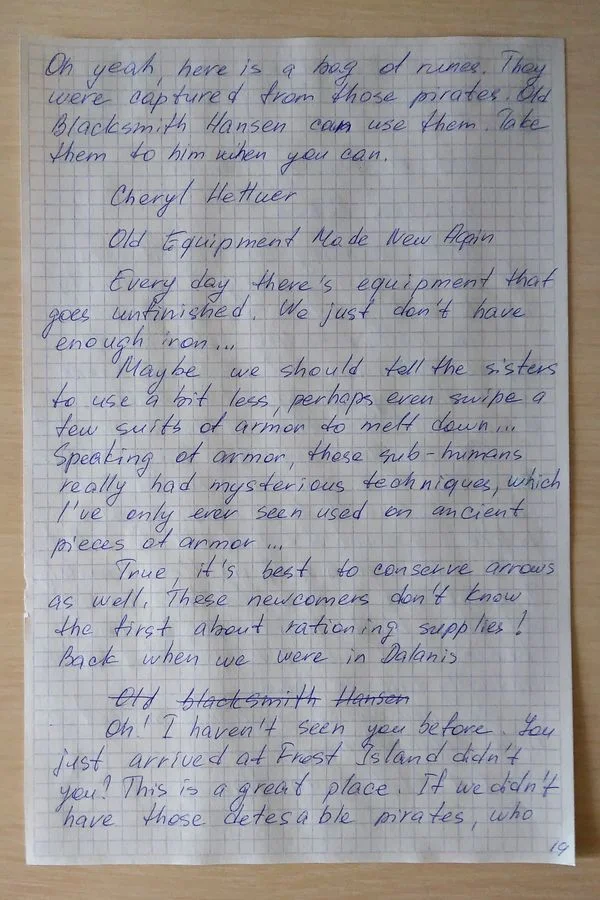 Oh yeah, here is a bag of runes. They
were captured from those pirates. Old
Blacksmith Hansen can use them. Take
them to him when you can.
Cheryl Hettner
Old Equipment Made New Again
Every day there's equipment that
goes unfinished. We just don't have
enough iron...
Maybe we should tell the sisters
to use a bit less, perhaps even swipe a
few suits of armor to melt down...
Speaking of armor, those sub-humans
really had mysterious techniques, which
I've only ever seen used on ancient
pieces of armor...
True, it's best to conserve arrows
as well. These newcomers don't know
the first about rationing supplies!
Back when we were in Dalanis
Old blacksmith Hansen
Oh! I haven't seen you before. You
just arrived at Frost Island didn't
you? This is a great place. If we didn't
have those detesable pirates, who
19